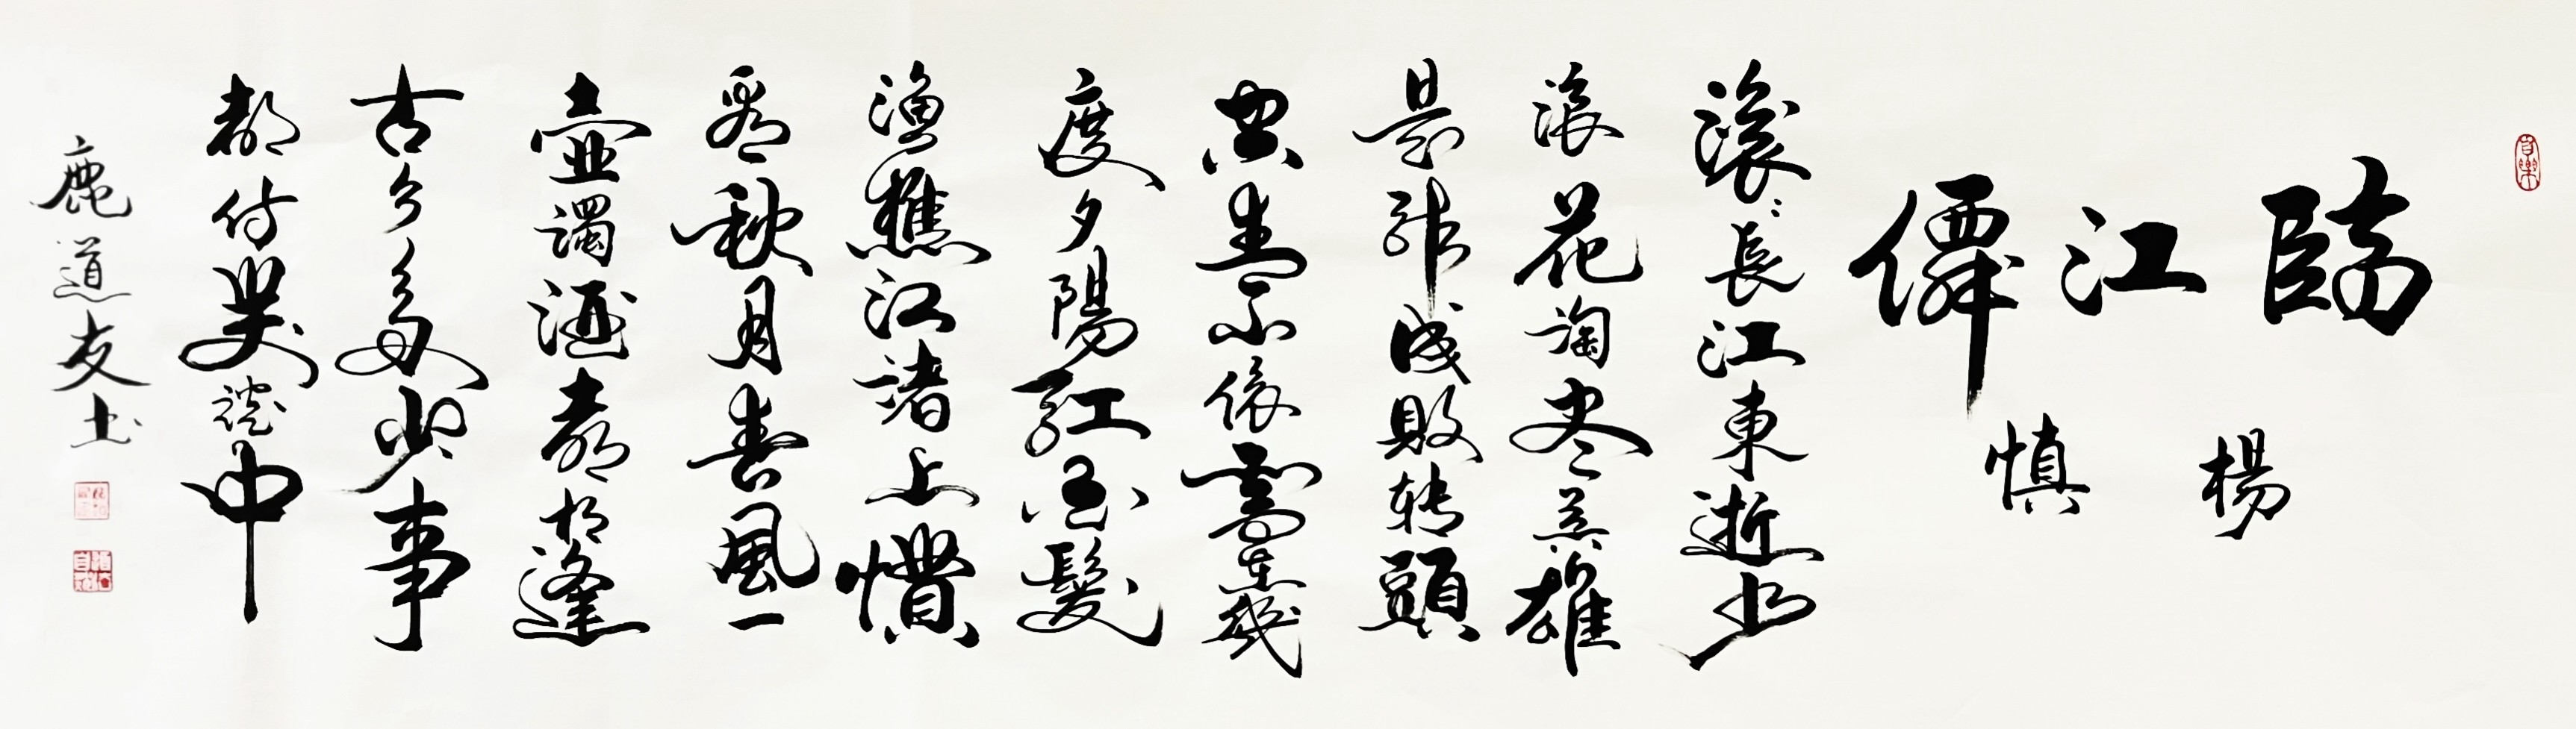 臨江僊
楊慎
滚〻長江東逝水
浪花淘尽英雄
是非成敗转頭
空青山依舊在幾
度夕陽紅白髮
漁樵江渚上慣
看秋月春風一
壺濁酒喜相逢
古今多少事
都付笑談中
鹿道友